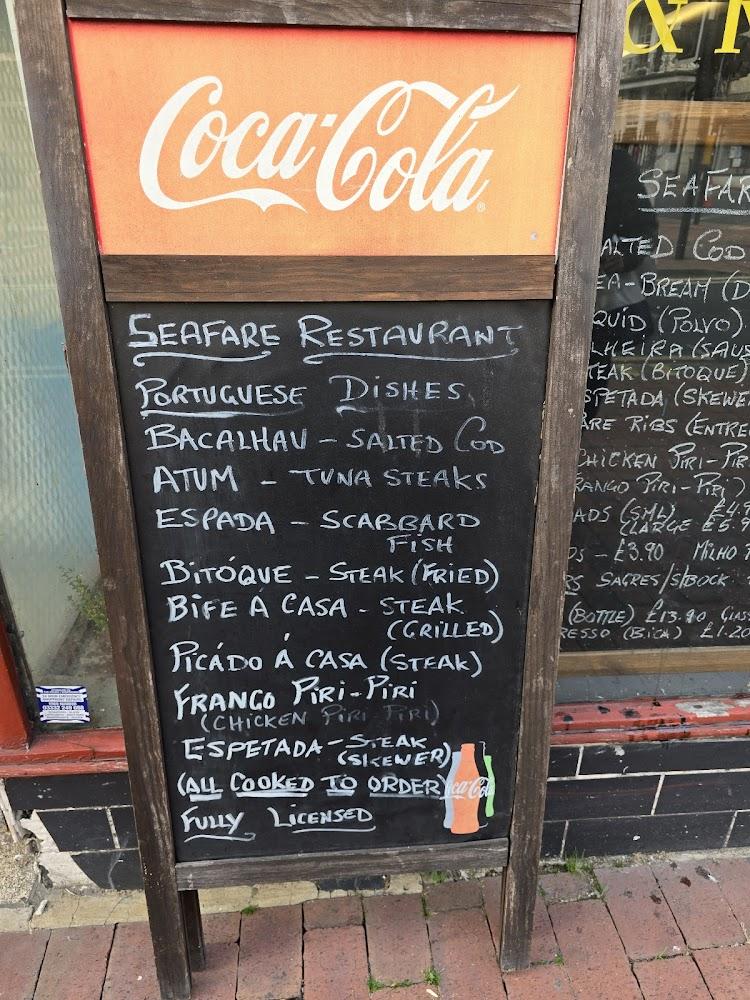 Coca-Cola
SEAFARE RESTAURANT
PORTUGUESE DISHES
BACALHAU - SALTED COD
ATUM - TUNA STEAKS
ESPADA - SCABBARD
FISH
BITÓQUE - STEAK (FRIED)
BIFE Á CASA - STEAK
(GRILLED)
PICÁDO Á CASA (STEAK)
FRANGO PIRI-PIRI
(CHICKEN PIRI PIRI)
ESPETADA - STEAK
(SKEWER)
(ALL COOKED TO ORDER)
FULLY LICENSED
&
SEAFAR
ALTED COD
EA-BREAM (D
QUID (POLVO)
LHEIRA (SAUS
TEAK (BITOQUE)
SPETADA (SKEWE
ARE RIBS (ENTRE
CHICKEN PIRI-PIR
RANGO PIRI-PIRI)
ADS (SML)
(LARGE
- £3.90 MILHO
SAGRES/S/BOCK
(BOTTLE) £13.90 GLAS
RESSO (BICA) £1.20